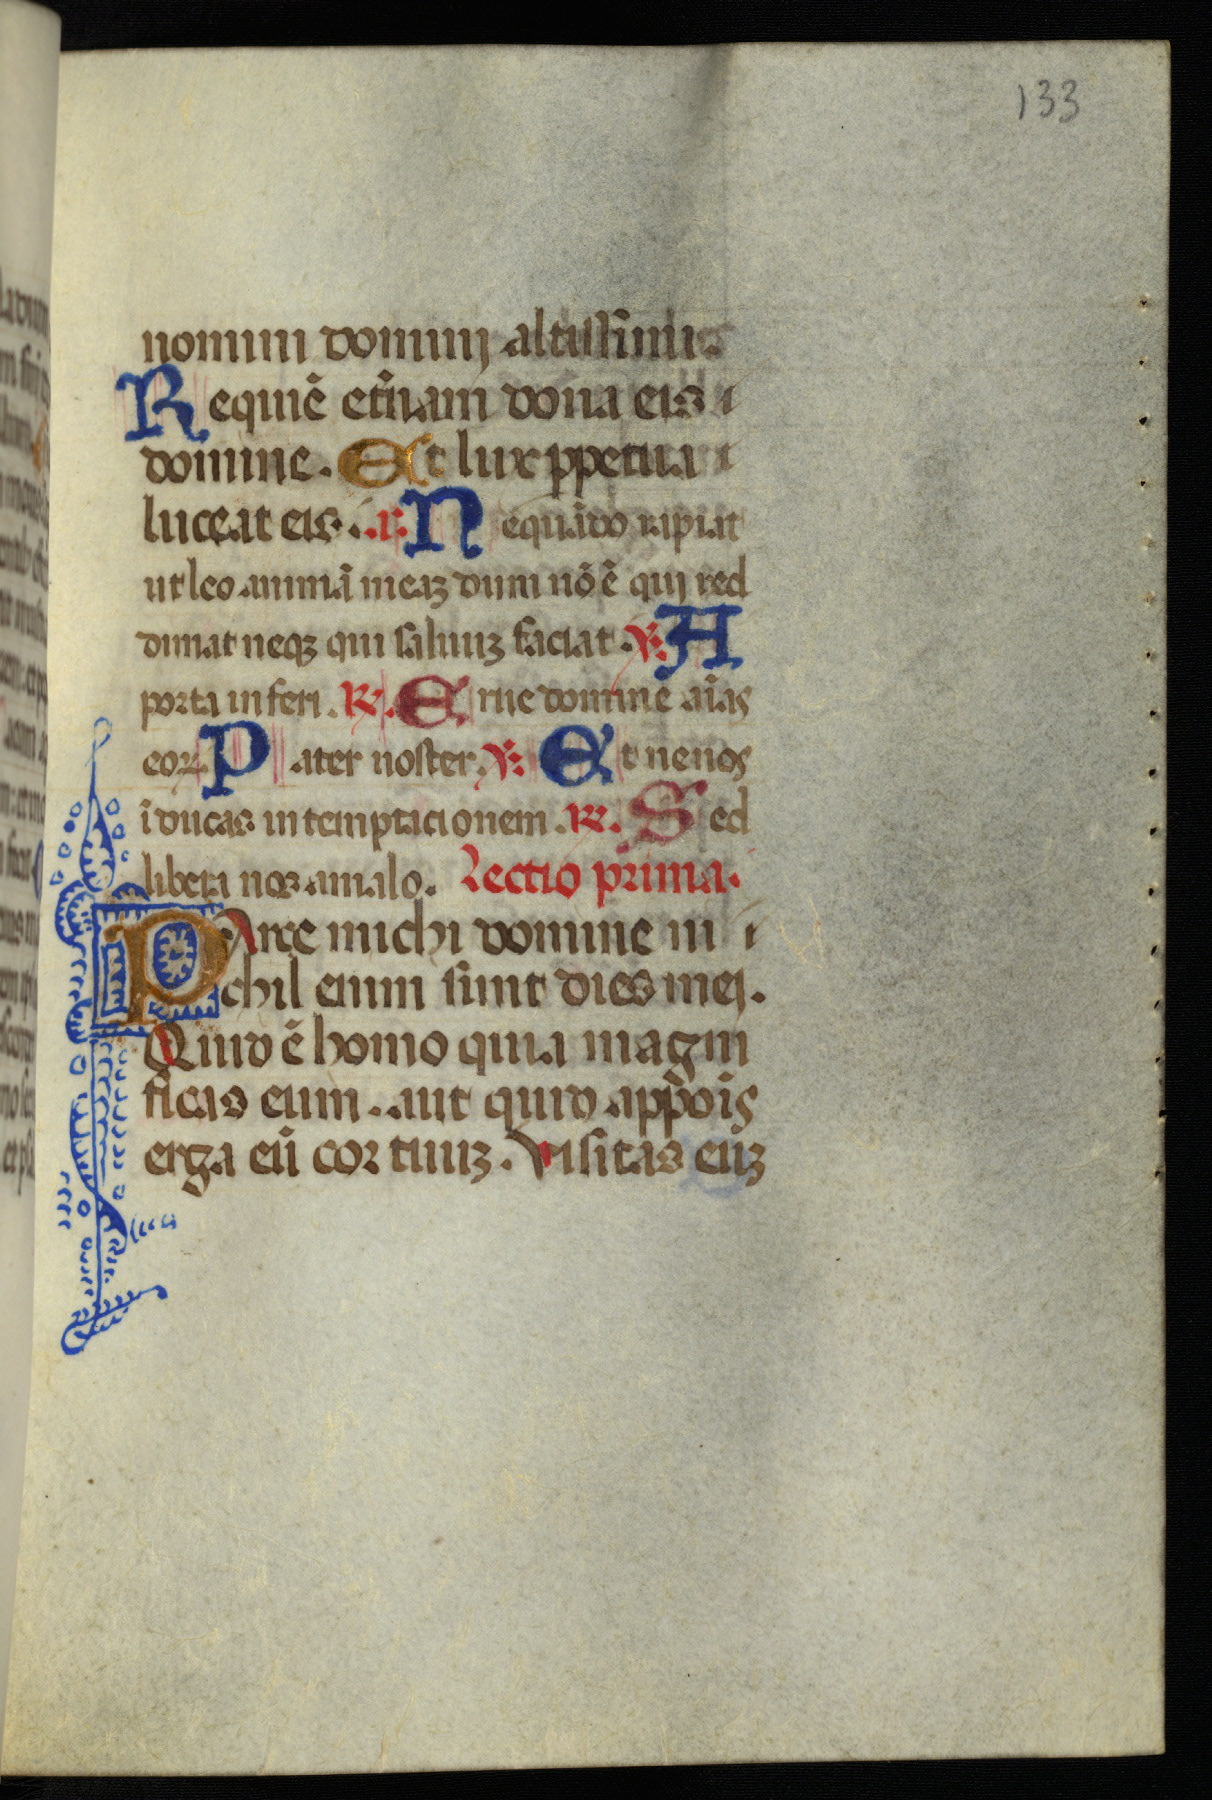 133
nomini domini altissimi.
Requiē et̄nam dona eis
domine. Et lux ꝑpetua
luceat eis. r. Nequādo rapiat
ut leo animā meaꝫ dum nō ē qui red
dimat neqꝫ qui saluuꝫ faciat. ℣. A
porta inferi. ℟. Erue domine aīas
eoꝝ. Pater noster. ℣. Et ne nos
īducas in temptacionem. ℟. Sed
libera nos amalo. Lectio prima.
PArce michi domine ni
chil enim sunt dies mei.
Quid ē homo quia magni
ficas eum. aut quid appōis
erga eū cor tuuꝫ. Visitas euꝫ